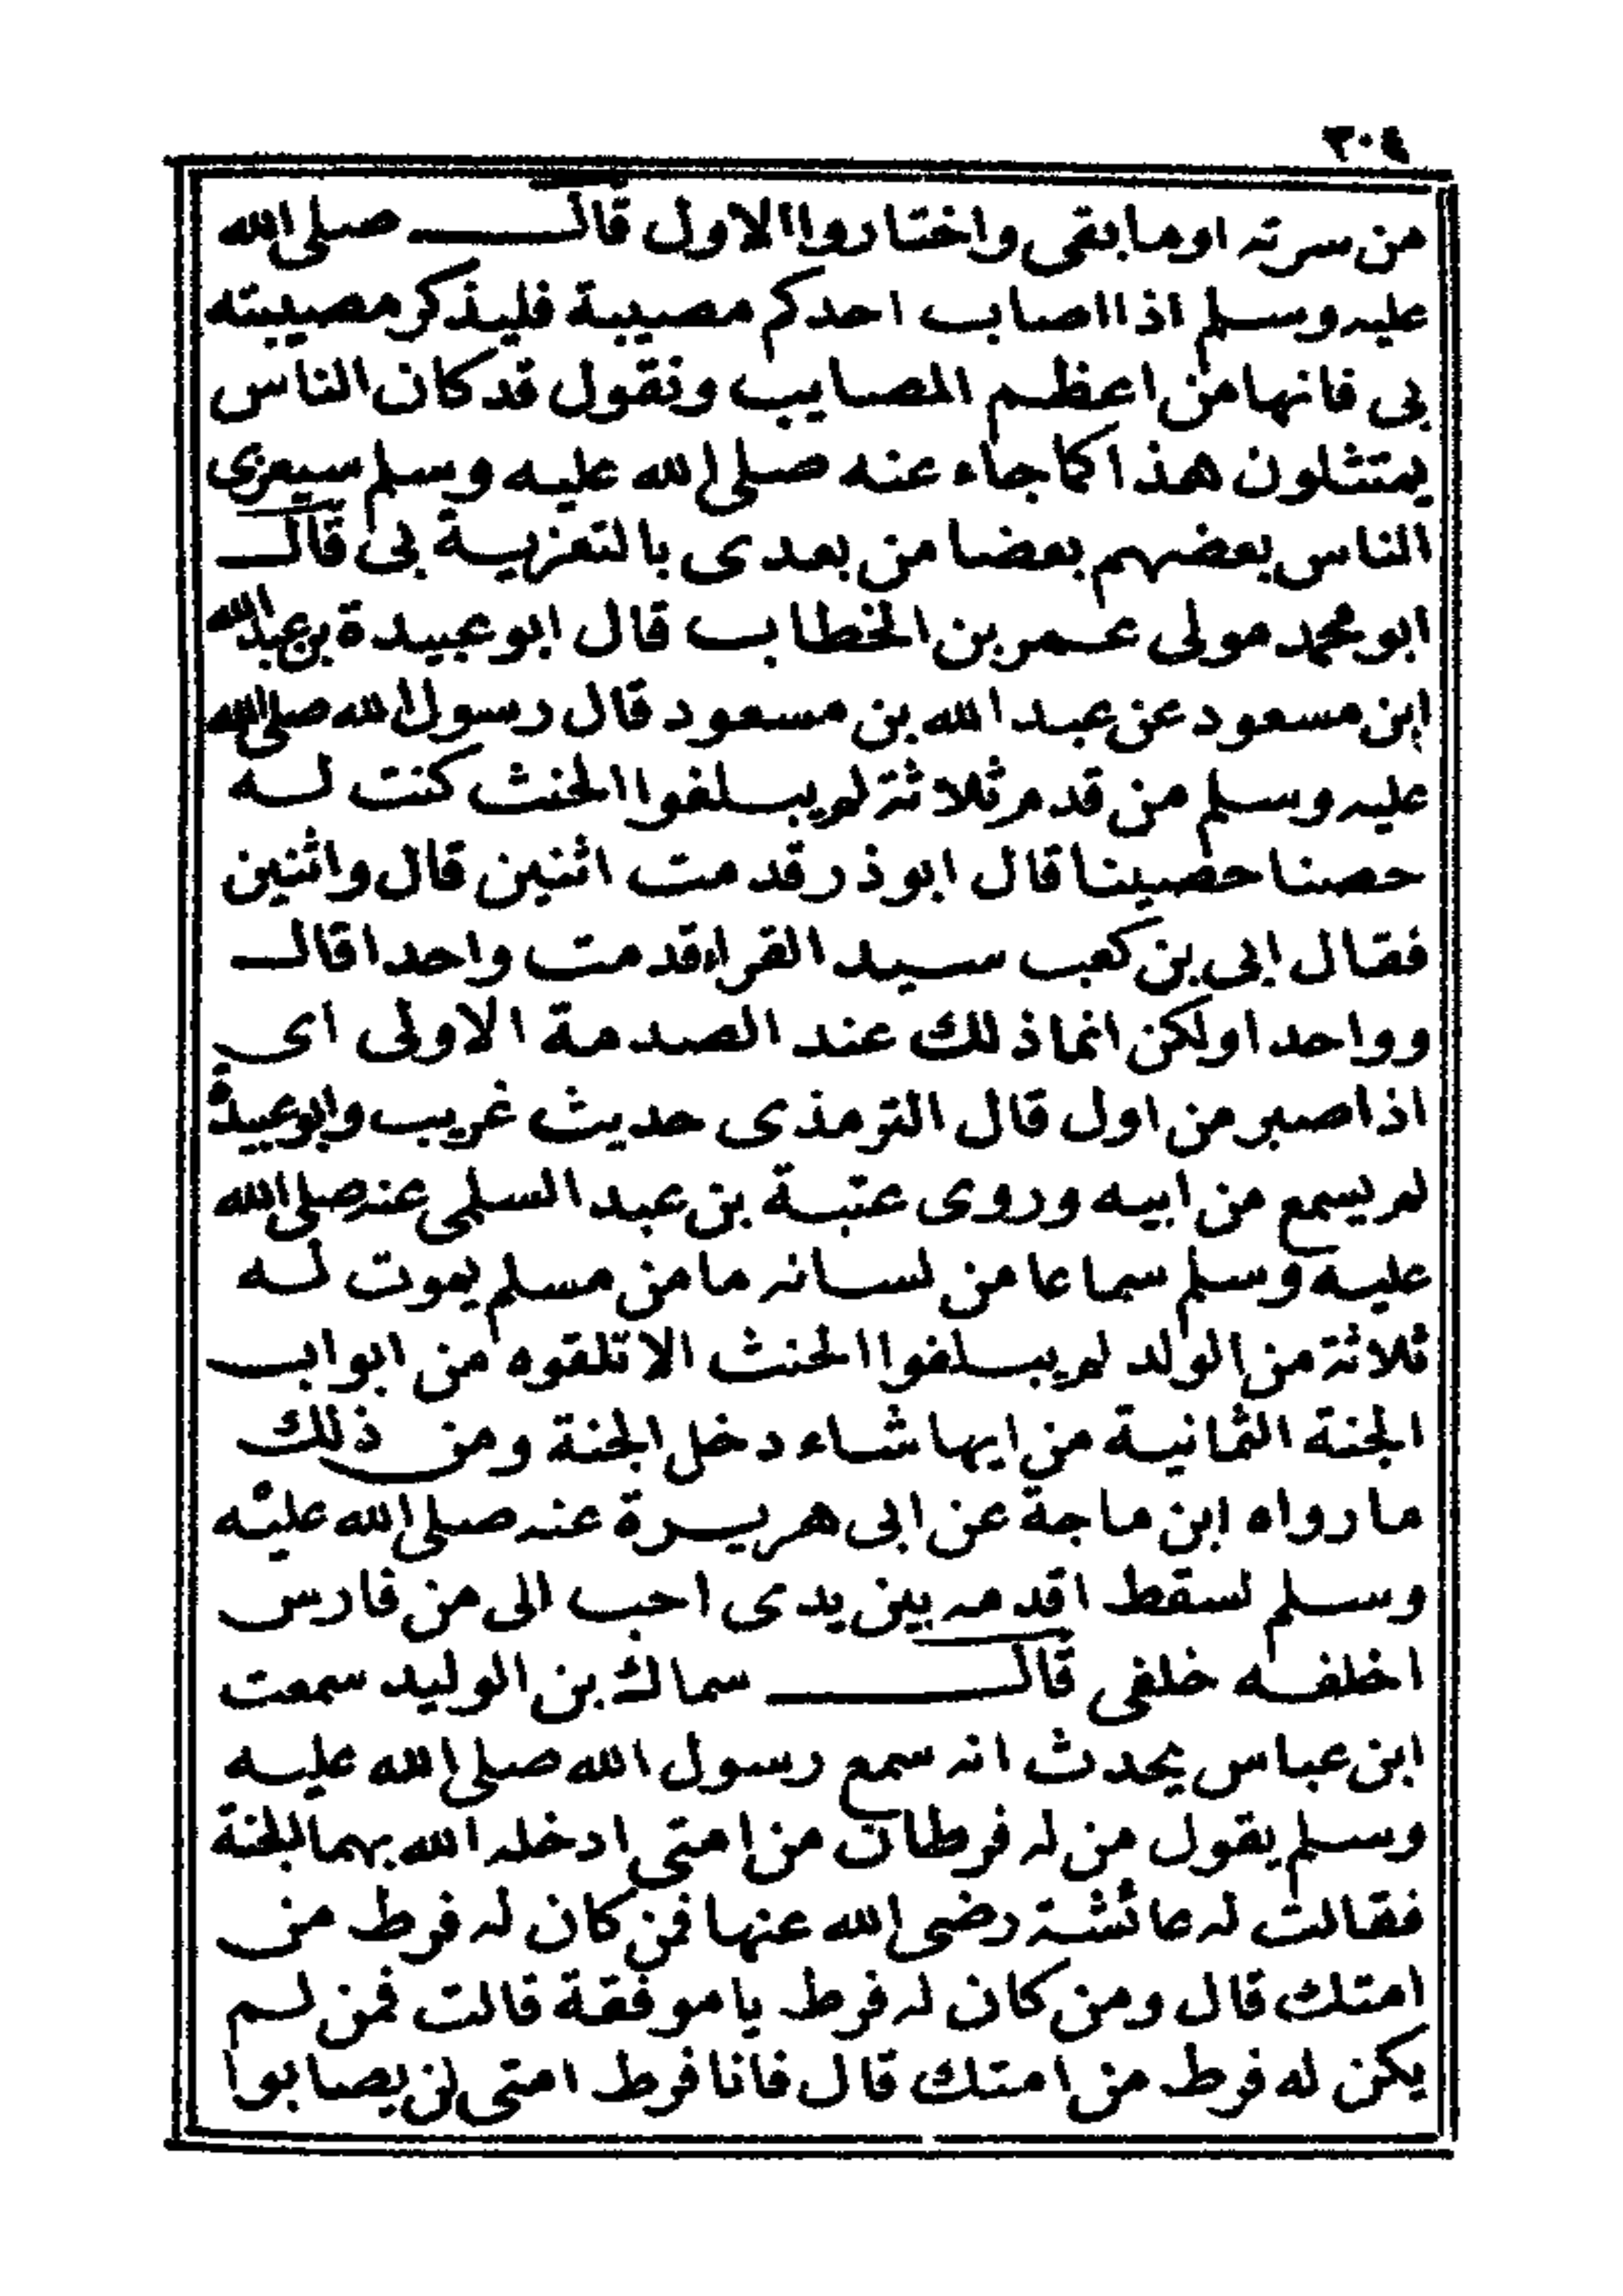 ٣٠٤
من سرته او ما بقى واختاروا الاول قال صلى الله
عليه وسلم اذا اصاب احدكم مصيبة فليذكر مصيبته
بى فانها من اعظم المصايب ونقول قد كان الناس
يمتثلون هذا كما جاء عنه صلى الله عليه وسلم سيعزى
الناس بعضهم بعضا من بعدى بالتعزية بى قال
ابو محمد مولى عمر بن الخطاب قال ابو عبيدة بن عبد الله
ابن مسعود عن عبد الله بن مسعود قال رسول الله صلى الله
عليه وسلم من قدم ثلاثة لم يبلغوا الحنث كنت له
حصنا حصينا قال ابو ذر قدمت اثنين قال واثنين
فقال ابى بن كعب سيد القراء قدمت واحدا قال
وواحدا ولكن انما ذلك عند الصدمة الاولى اى
اذا صبر من اول قال الترمذى حديث غريب وابو عبيدة
لم يسمع من ابيه وروى عتبة بن عبد السلمى عنه صلى الله
عليه وسلم سماعا من لسانه ما من مسلم يموت له
ثلاثة من الولد لم يبلغوا الحنث الا تلقوه من ابواب
الجنة الثمانية من ايها شاء دخل الجنة ومن ذلك
ما رواه ابن ماجة عن ابى هريرة عنه صلى الله عليه
وسلم لسقط اقدمه بين يدى احب الى من فارس
اخلفه خلفى قال سماك بن الوليد سمعت
ابن عباس يحدث انه سمع رسول الله صلى الله عليه
وسلم يقول من له فرطان من امتى ادخله الله بهما الجنة
فقالت له عائشة رضى الله عنها فمن كان له فرط من
امتك قال ومن كان له فرط يا موفقة قالت فمن لم
يكن له فرط من امتك قال فانا فرط امتى لن يصابوا